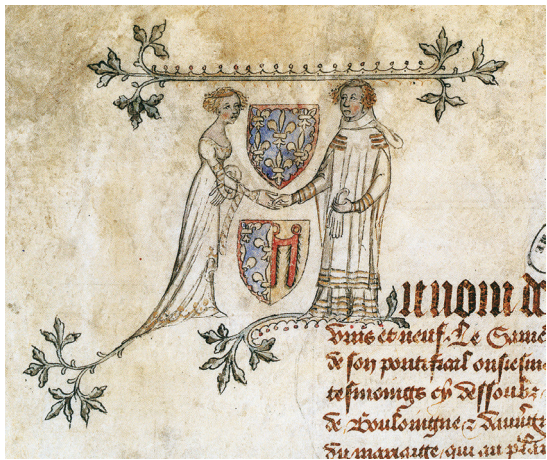 u nom de
vins et neuf. Le Same
de son pontificat onsiesm
tesmoings cy dessoubz
de Bouloingne ⁊ dauuergne
du mariaige, qui au plai